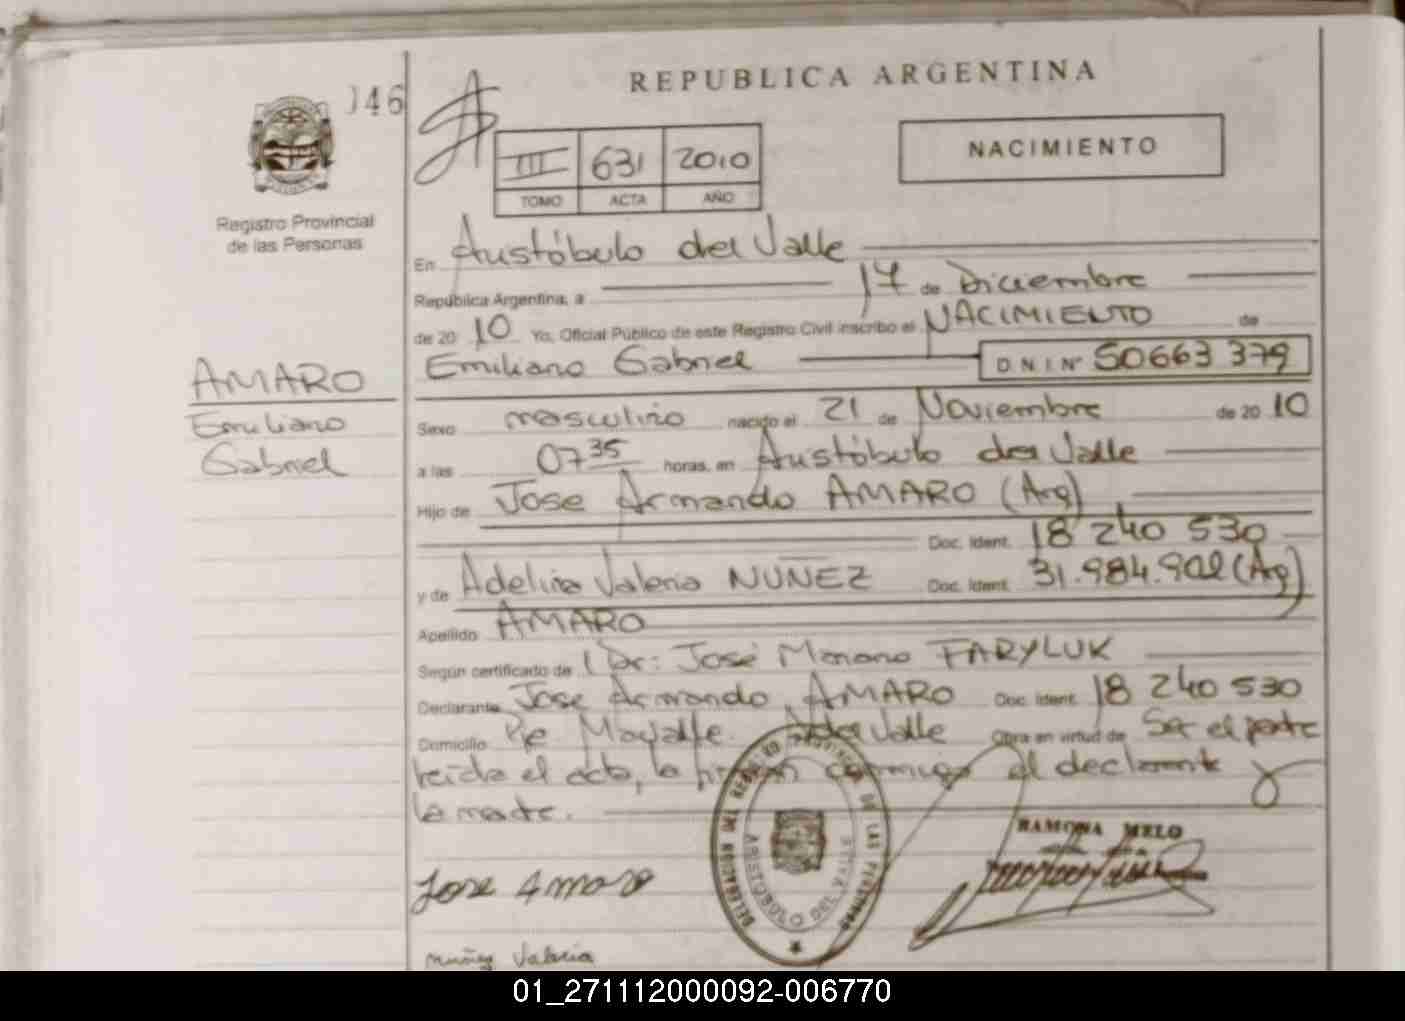 146
REPUBLICA ARGENTINA
III 631 2010
TOMO ACTA AÑO
NACIMIENTO
Registro Provincial
de las Personas
En Aristóbulo del Valle
República Argentina, a 17 de Diciembre
de 2010 Yo, Oficial Público de este Registro Civil inscribo el NACIMIENTO de
Emiliano Gabriel DNI Nº 50663 379
AMARO
Emiliano
Gabriel
Sexo masculino nacido el 21 de Noviembre de 2010
a las 07 35 horas, en Aristóbulo del Valle
Hijo de Jose Armando AMARO (Arg)
Doc. Ident. 18 240 530
y de Adelina Valeria NUÑEZ Doc. Ident. 31.984.902 (Arg)
Apellido AMARO
Según certificado de Dr: José Mariano FARYLUK
Declarante Jose Armando AMARO Doc. Ident. 18 240 530
Domicilio A del Valle Obra en virtud de Ser el padre
leida el acta, la firman conmigo el declarante y
la madre.
RAMONA MELO
DELEGACION DEL REGISTRO PROVINCIAL DE LAS PERSONAS
ARISTOBULO DEL VALLE
Jose Amaro
Nuñez Valeria
01_271112000092-006770